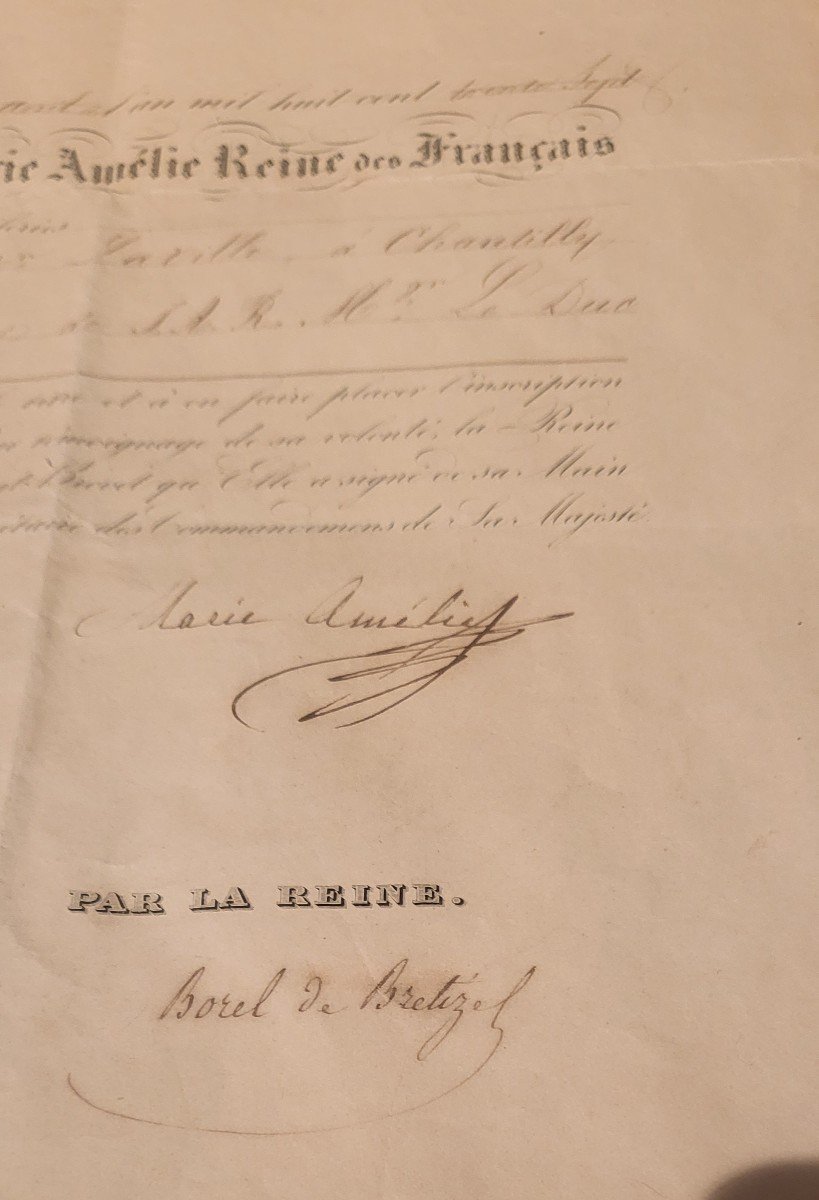 l'an mil huit cent trente Sept
Amélie Reine des Français
à Chantilly
de S. A. R. Mgr. Le Duc
et à en faire placer l'inscription
témoignage de sa volonté, la Reine
Brevet qu'Elle a signé de sa Main
des Commandemens de Sa Majesté
Marie Amélie
PAR LA REINE.
Borel de Bretizel